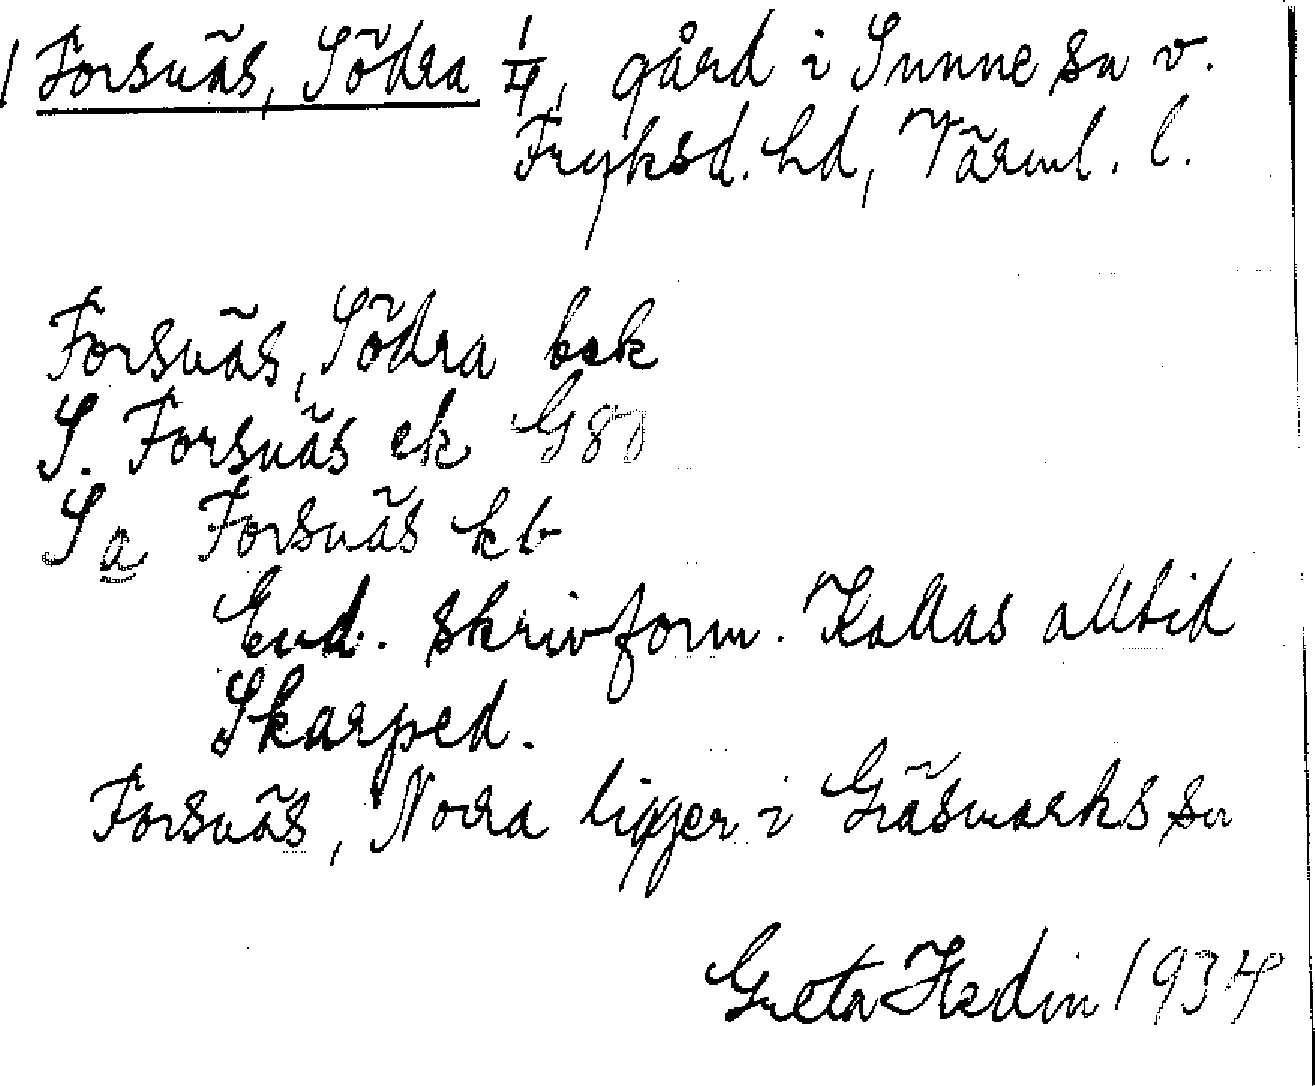 1 Forsnäs, Södra 1/4, gård i Sunne sn v.
Fryksd. hd, Värml. l.
Forsnäs, Södra bok
S. Forsnäs ek G 80
Sa Forsnäs kb
End. skrivform. Kallas alltid
Skarped.
Forsnäs, Norra ligger i Gräsmarks sn
Greta Hedin 1934